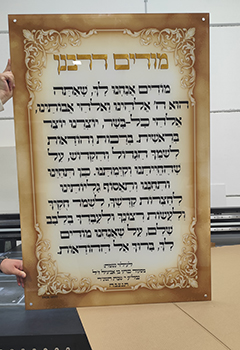 מודים דרבנן
מודים אנחנו לך, שאתה
הוא ה' אלהינו ואלהי אבותינו,
אלהי כל-בשר, יוצרנו יוצר
בראשית. ברכות והודאות
לשמך הגדול והקדוש, על
שהחייתנו וקימתנו. כן תחינו
ותחננו ותאסוף גליותינו
לחצרות קדשך, לשמר חקיך
ולעשות רצונך ולעבדך בלבב
שלם, על שאנחנו מודים
לך, ברוך אל ההודאות.
לעילוי נשמת
תנצבה